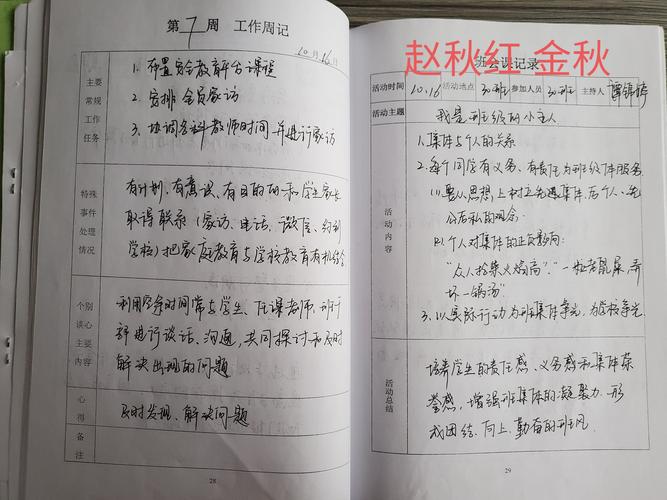 第7周 工作周记
10月16日
主要常规工作任务
1. 布置安全教育平台课程
2. 安排全员家访
3. 协调各科教师时间并进行家访
特殊事件处理情况
有计划、有意识、有目的的和学生家长
取得联系(家访、电话、微信、约到
学校)把家庭教育与学校教育有机结合
个别谈心主要内容
利用学余时间常与学生、任课老师、班干
部进行谈话、沟通,共同探讨和及时
解决出现的问题
心得
及时发现、解决问题
备注
28
赵秋红 金秋
班会课记录
活动时间 10.16 活动地点 30班 参加人员 30班 主持人
活动主题 我是班级的小主人
活动内容
1.集体与个人的关系
2.每个同学有义务、有责任为班级体服务
(1)要从思想上树立先集体,后个人、先
公后私的观念;
(2)个人对集体的正反影响:
"众人拾柴火焰高"、"一粒老鼠屎,弄
坏一锅汤"
3.以实际行动为班集体争光,为学校争光.
活动总结
培养学生的责任感、义务感和集体荣
誉感,增强班集体的凝聚力.形
成团结、向上、勤奋的班风.
29